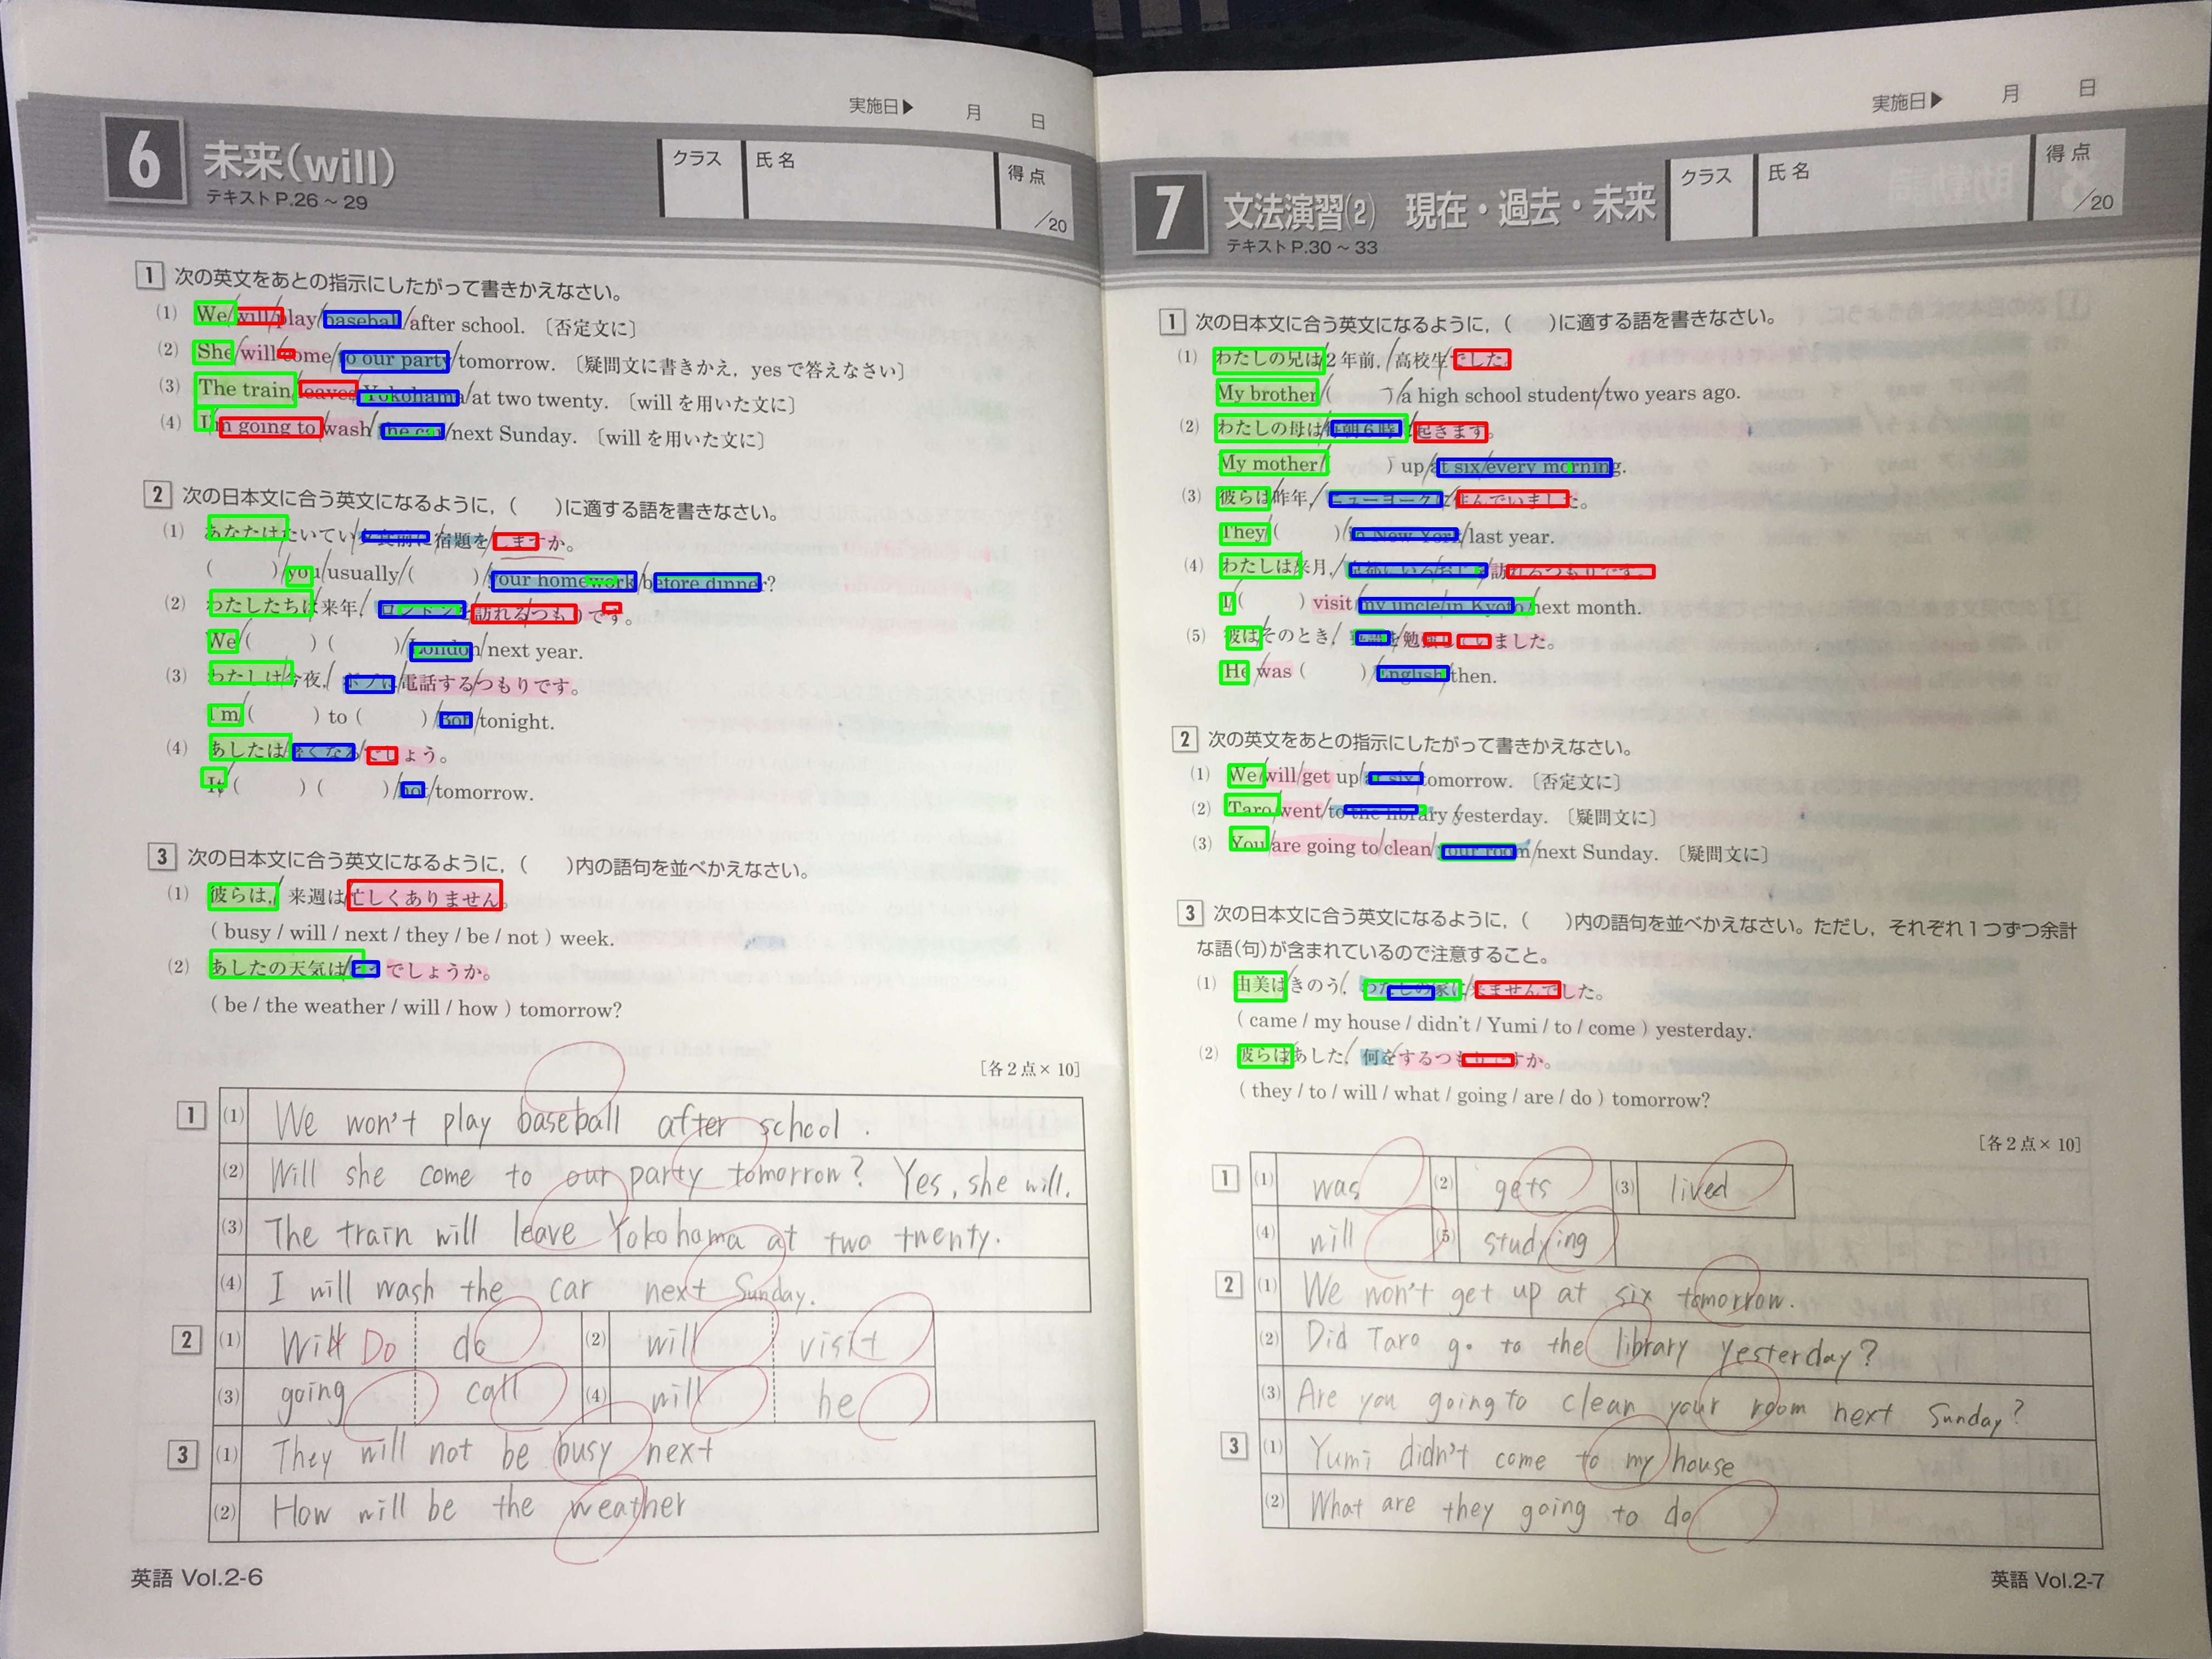 実施日▶ 月 日
6 未来(will)
テキストP.26～29
クラス 氏名 得点 /20
1 次の英文をあとの指示にしたがって書きかえなさい。
(1) We/will/play/baseball/after school. 〔否定文に〕
(2) She/will/come/to our party/tomorrow. 〔疑問文に書きかえ, yesで答えなさい〕
(3) The train/leaves/Yokohama/at two twenty. 〔willを用いた文に〕
(4) I'm going to/wash/the car/next Sunday. 〔willを用いた文に〕
2 次の日本文に合う英文になるように, ( )に適する語を書きなさい。
(1) あなたは/たいてい/夕食前に/宿題を/しますか。
( )/you/usually/( )/your homework/before dinner?
(2) わたしたちは/来年,/ロンドンを/訪れる/つもりです。
We/( ) ( )/London/next year.
(3) わたしは/今夜,/ボブに/電話する/つもりです。
I'm/( ) to ( )/Bob/tonight.
(4) あしたは/暑くなる/でしょう。
It/( ) ( )/hot/tomorrow.
3 次の日本文に合う英文になるように, ( )内の語句を並べかえなさい。
(1) 彼らは,/来週は/忙しくありません。
( busy / will / next / they / be / not ) week.
(2) あしたの天気は/どうでしょうか。
( be / the weather / will / how ) tomorrow?
[各2点×10]
1 (1) We won't play baseball after school.
(2) Will she come to our party tomorrow? Yes, she will.
(3) The train will leave Yokohama at two twenty.
(4) I will wash the car next Sunday.
2 (1) Will Do do (2) will visit
(3) going call (4) will be
3 (1) They will not be busy next
(2) How will be the weather
英語 Vol.2-6
実施日▶ 月 日
7 文法演習(2) 現在・過去・未来
テキストP.30～33
クラス 氏名 得点 /20
1 次の日本文に合う英文になるように, ( )に適する語を書きなさい。
(1) わたしの兄は/2年前,/高校生/でした。
My brother/( )/a high school student/two years ago.
(2) わたしの母は/毎朝6時に/起きます。
My mother/( ) up/at six/every morning.
(3) 彼らは/昨年,/ニューヨークに/住んでいました。
They/( )/in New York/last year.
(4) わたしは/来月,/京都にいるおじを/訪れるつもりです。
I/( ) visit/my uncle/in Kyoto/next month.
(5) 彼は/そのとき,/英語を/勉強していました。
He/was ( )/English/then.
2 次の英文をあとの指示にしたがって書きかえなさい。
(1) We/will/get up/at six/tomorrow. 〔否定文に〕
(2) Taro/went/to the library/yesterday. 〔疑問文に〕
(3) You/are going to/clean/your room/next Sunday. 〔疑問文に〕
3 次の日本文に合う英文になるように, ( )内の語句を並べかえなさい。ただし, それぞれ1つずつ余計
な語(句)が含まれているので注意すること。
(1) 由美は/きのう,/わたしの家に/来ませんでした。
( came / my house / didn't / Yumi / to / come ) yesterday.
(2) 彼らは/あした,/何を/するつもりですか。
( they / to / will / what / going / are / do ) tomorrow?
[各2点×10]
1 (1) was (2) gets (3) lived
(4) will (5) studying
2 (1) We won't get up at six tomorrow.
(2) Did Taro go to the library yesterday?
(3) Are you going to clean your room next Sunday?
3 (1) Yumi didn't come to my house
(2) What are they going to do
英語 Vol.2-7